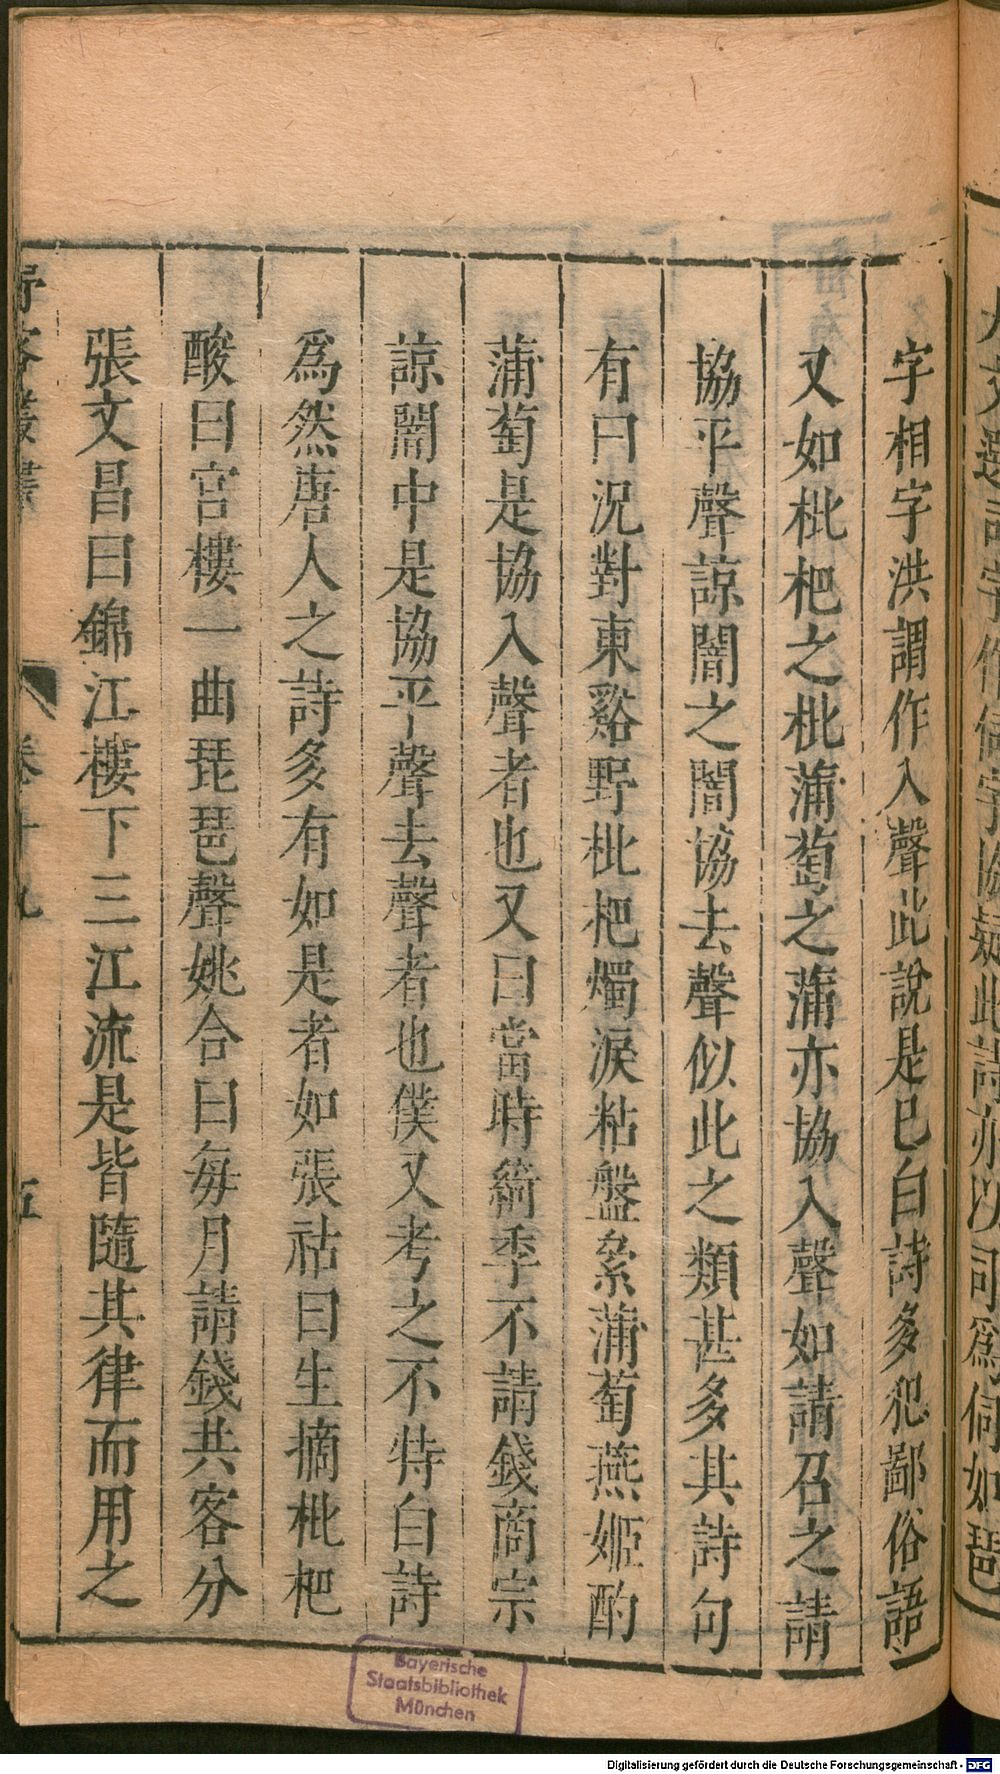 字相字洪謂作入聲此說是已白詩多犯鄙俗語
又如枇杷之枇蒲萄之蒲亦協入聲如請召之請
協平聲諒闇之闇協去聲似此之類甚多其詩句
有曰況對東谿野枇杷燭淚粘盤纍蒲萄燕姬酌
蒲萄是協入聲者也又曰當時綺季不請錢商宗
諒闇中是協平聲去聲者也僕又考之不特白詩
爲然唐人之詩多有如是者如張祜曰生摘枇杷
酸曰宮樓一曲琵琶聲姚合曰每月請錢共客分
張文昌曰錦江樓下三江流是皆隨其律而用之
卷十九
五
Bayerische
Staatsbibliothek
München
Digitalisierung gefördert durch die Deutsche Forschungsgemeinschaft - DFG